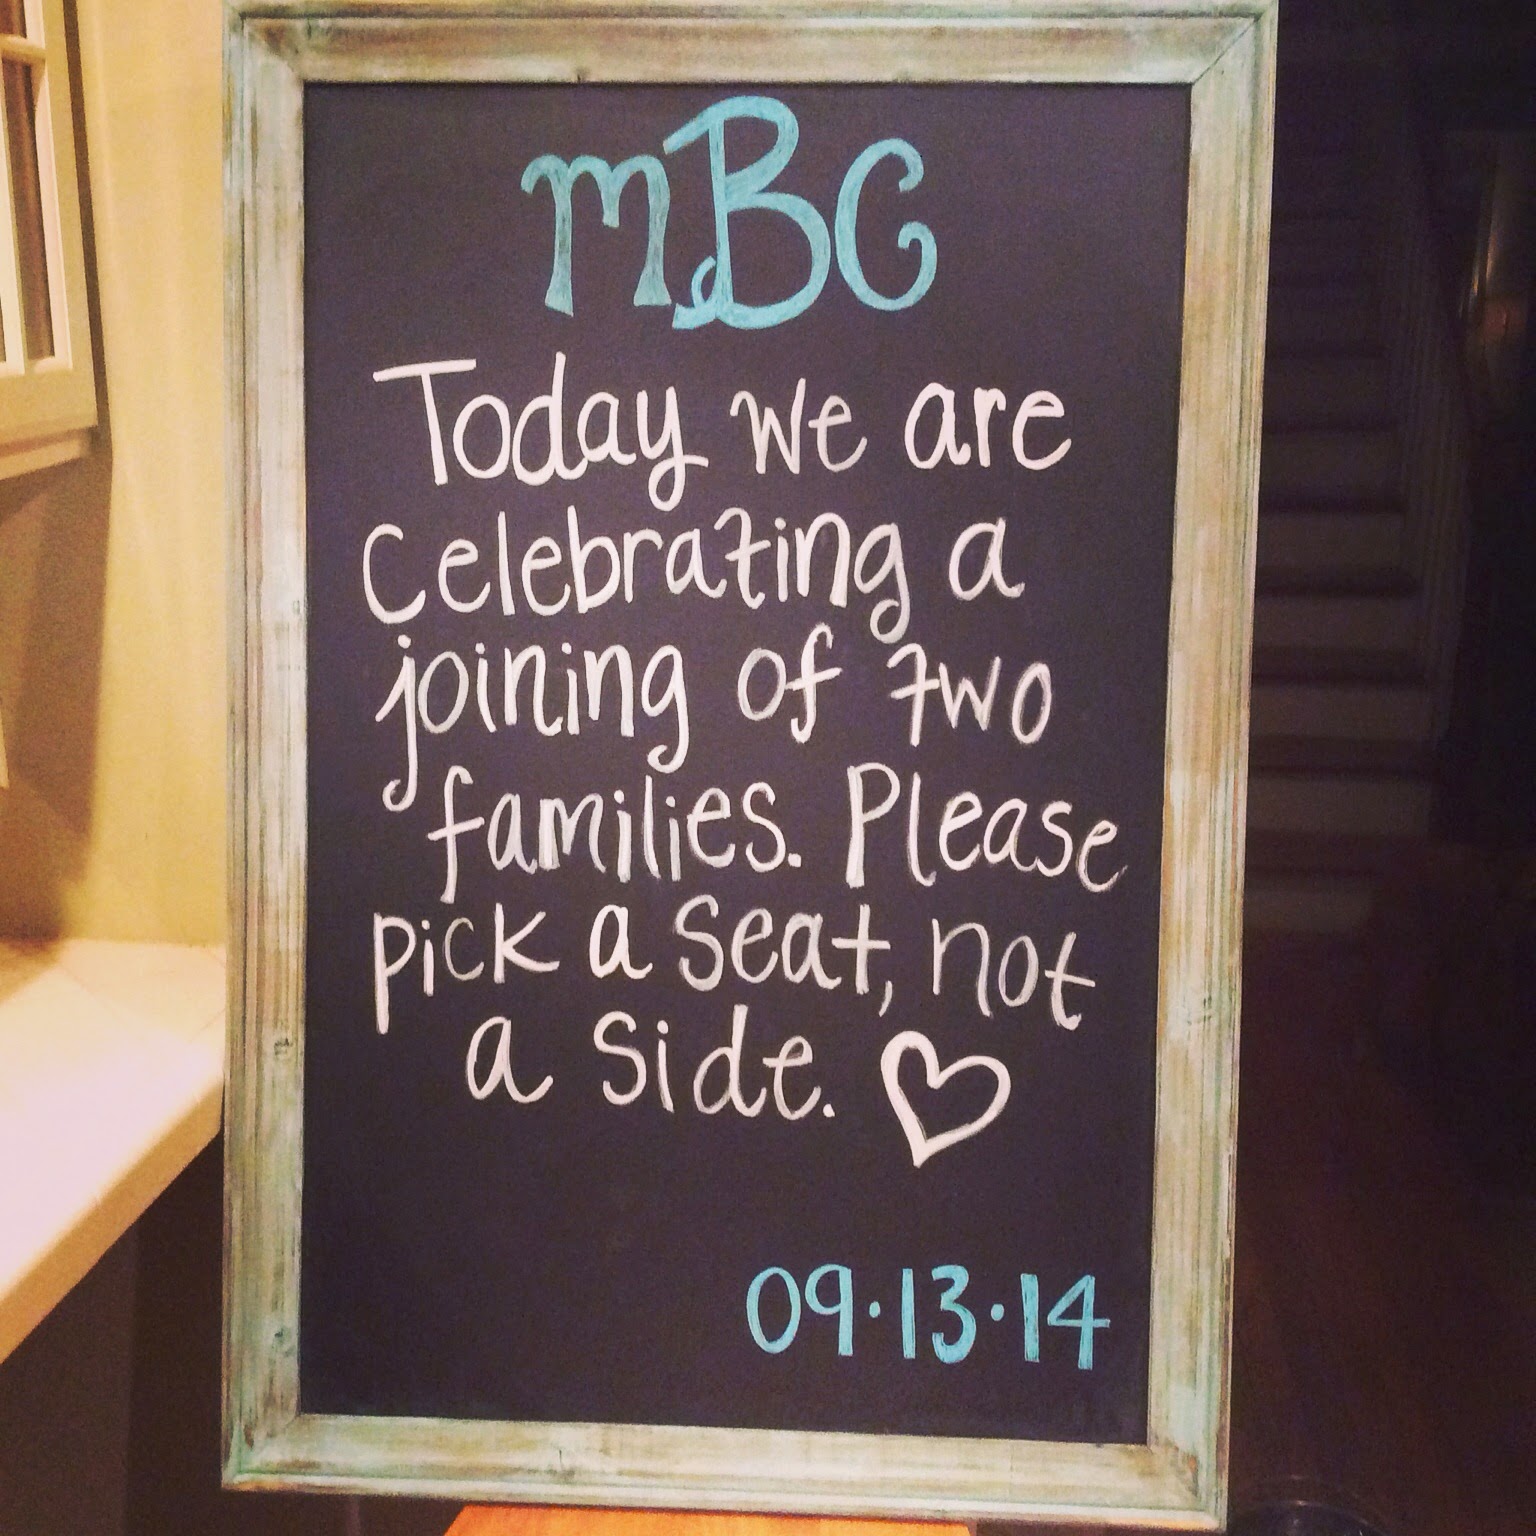 mBC
Today we are
celebrating a
joining of two
families. Please
pick a seat, not
a side.
09.13.14